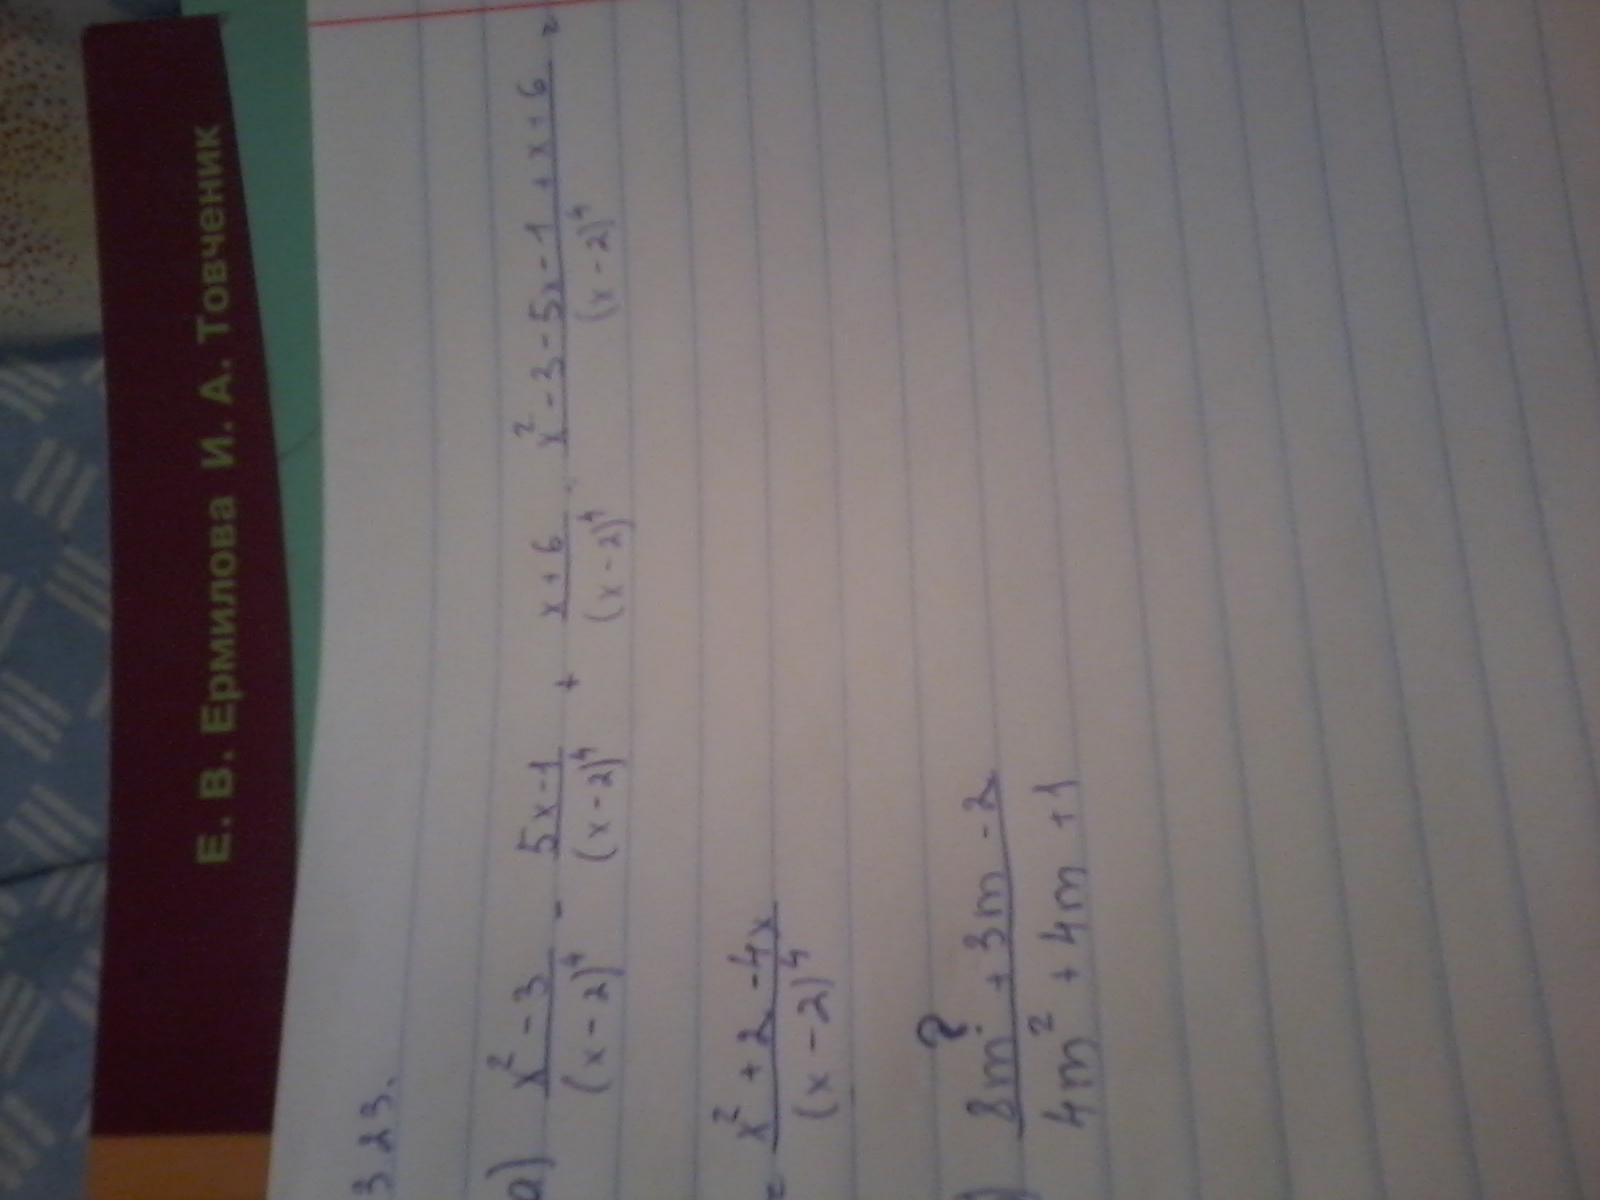 Е. В. Ермилова И. А. Товченик
323.
а) x² - 3 / (x - 2)⁴ - 5x - 1 / (x - 2)⁴ + x + 6 / (x - 2)⁴ x² - 3 - 5x - 1 + x + 6 / (x - 2)⁴ =
= x² + 2 - 4x / (x - 2)⁴
) 8m? + 3m - 2 / 4m² + 4m + 1